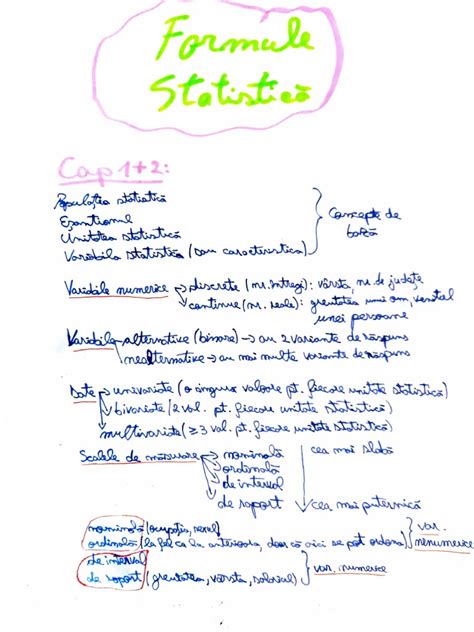 Formule
Statistică
Cap 1+2:
Populația statistică
Eșantionul
Unitatea statistică
Variabila statistică (sau caracteristica)
Concepte de
bază
Variabile numerice → discrete (nr. întregi): vârsta, nr. de județe
→ continue (nr. reale): greutatea unui om, venitul
unei persoane
Variabile alternative (binare) → au 2 variante de răspuns
nealternative → au mai multe variante de răspuns
Date → univariate (o singură valoare pt. fiecare unitate statistică)
bivariate (2 val. pt. fiecare unitate statistică)
multivariate (≥3 val. pt. fiecare unitate statistică)
Scalele de măsurare → nominală cea mai slabă
ordinală
de interval
de raport cea mai puternică
nominală (ocupația, sexul)
ordinală (la fel ca la anterioara, doar că aici se pot ordona)
var.
nenumerice
de interval
de raport (greutatea, vârsta, salariul)
var. numerice